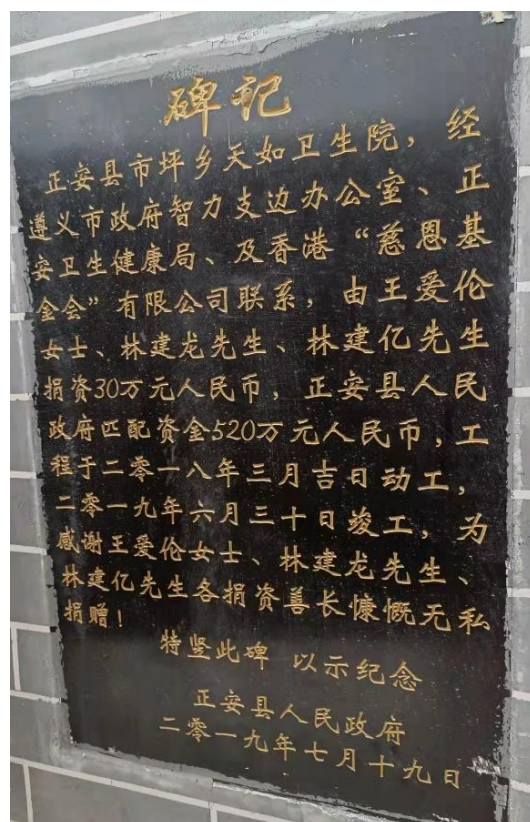 碑记
正安县市坪乡天如卫生院，经
遵义市政府智力支边办公室、正
安卫生健康局、及香港“慈恩基
金会”有限公司联系，由王爱伦
女士、林建龙先生、林建亿先生
捐资30万元人民币，正安县人民
政府匹配资金520万元人民币，工
程于二零一八年三月吉日动工，
二零一九年六月三十日竣工，为
感谢王爱伦女士、林建龙先生、
林建亿先生各捐资善长慷慨无私
捐赠！
特竖此碑 以示纪念
正安县人民政府
二零一九年七月十九日